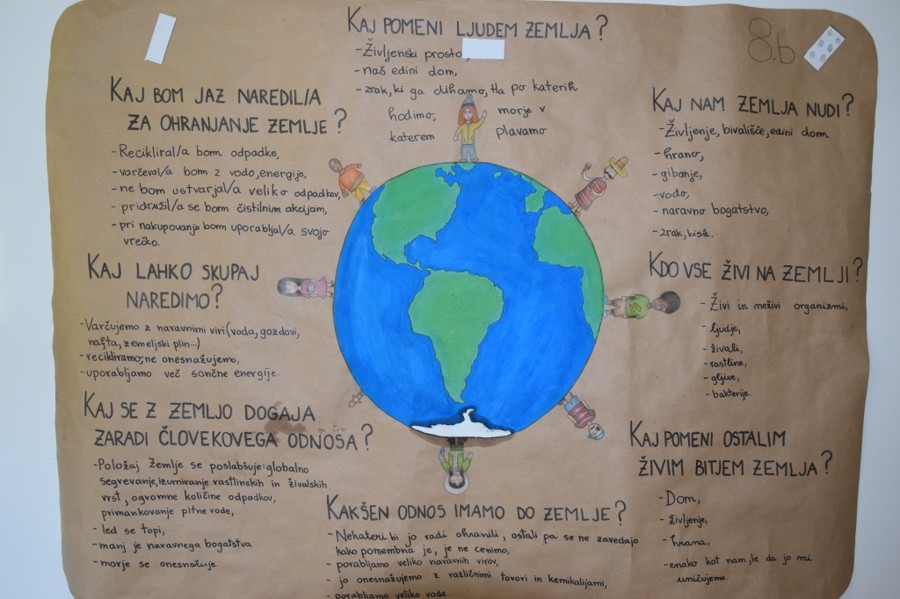 KAJ POMENI LJUDEM ZEMLJA?
-Življenski
-naš edini dom,
-zrak, ki ga dihamo, tla po katerih
hodimo, morje v
katerem plavamo
8.b
KAJ BOM JAZ NAREDIL/A
ZA OHRANJANJE ZEMLJE?
-Recikliral/a bom odpadke,
-varčeval/a bom z vodo, energijo,
-ne bom ustvarjal/a veliko odpadkov,
-pridružil/a se bom čistilnim akcijam,
-pri nakupovanju bom uporabljal/a svojo
vrečko.
KAJ LAHKO SKUPAJ
NAREDIMO?
-Varčujemo z naravnimi viri (voda, gozdovi,
nafta, zemeljski plin...)
-recikliramo, ne onesnažujemo,
-uporabljamo več sončne energije.
KAJ SE Z ZEMLJO DOGAJA
ZARADI ČLOVEKOVEGA ODNOSA?
-Položaj Zemlje se poslabšuje: globalno
segrevanje, izumiranje rastlinskih in živalskih
vrst, ogromne količine odpadkov,
primankovanje pitne vode,
-led se topi,
-manj je naravnega bogatstva
-morje se onesnažuje.
KAKŠEN ODNOS IMAMO DO ZEMLJE?
-Nekateri bi jo radi ohranili, ostali pa se ne zavedajo
kako pomembna je, je ne cenimo,
-porabljamo veliko naravnih virov,
-jo onesnažujemo z različnimi tovori in kemikalijami,
-porabljamo veliko vode.
KAJ NAM ZEMLJA NUDI?
-Življenje, bivališče, edini dom
-hrano,
-gibanje,
-vodo,
-naravno bogatstvo,
-zrak, kisik.
KDO VSE ŽIVI NA ZEMLJI?
-Živi in neživi organizmi,
-ljudje,
-živali,
-rastline,
-glive,
-bakterije.
KAJ POMENI OSTALIM
ŽIVIM BITJEM ZEMLJA?
-Dom,
-življenje,
-hrana,
-enako kot nam, le da jo mi
uničujemo.